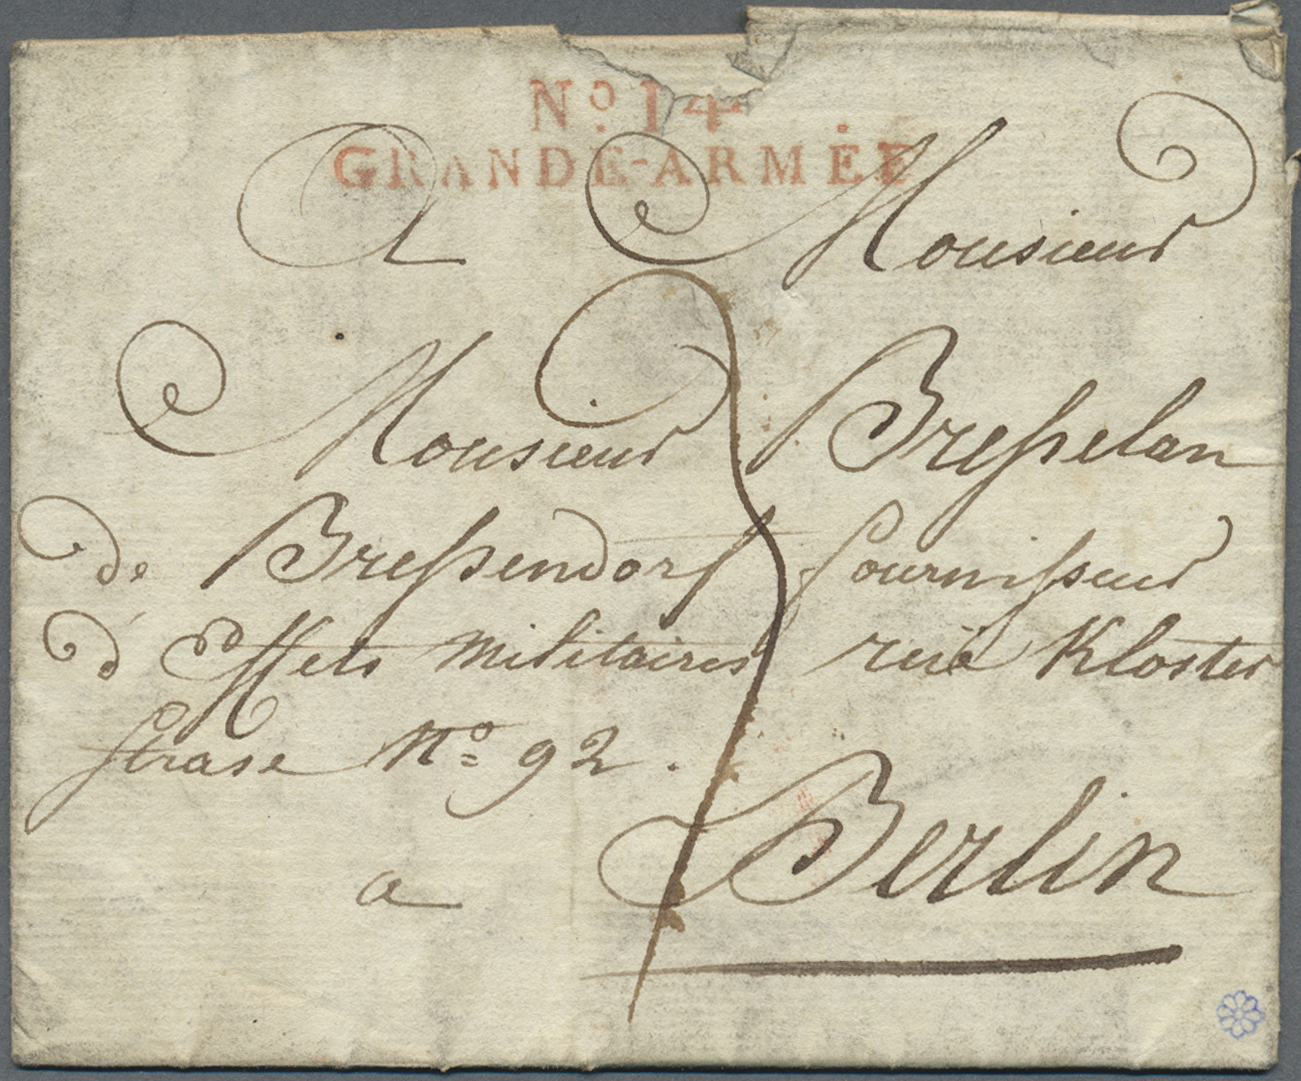 No. 14
GRANDE-ARMÉE
A Monsieur
Monsieur Bresselan
de Bressendorf fournisseur
d'Effets militaires rue Kloster
strase No 92.
a Berlin